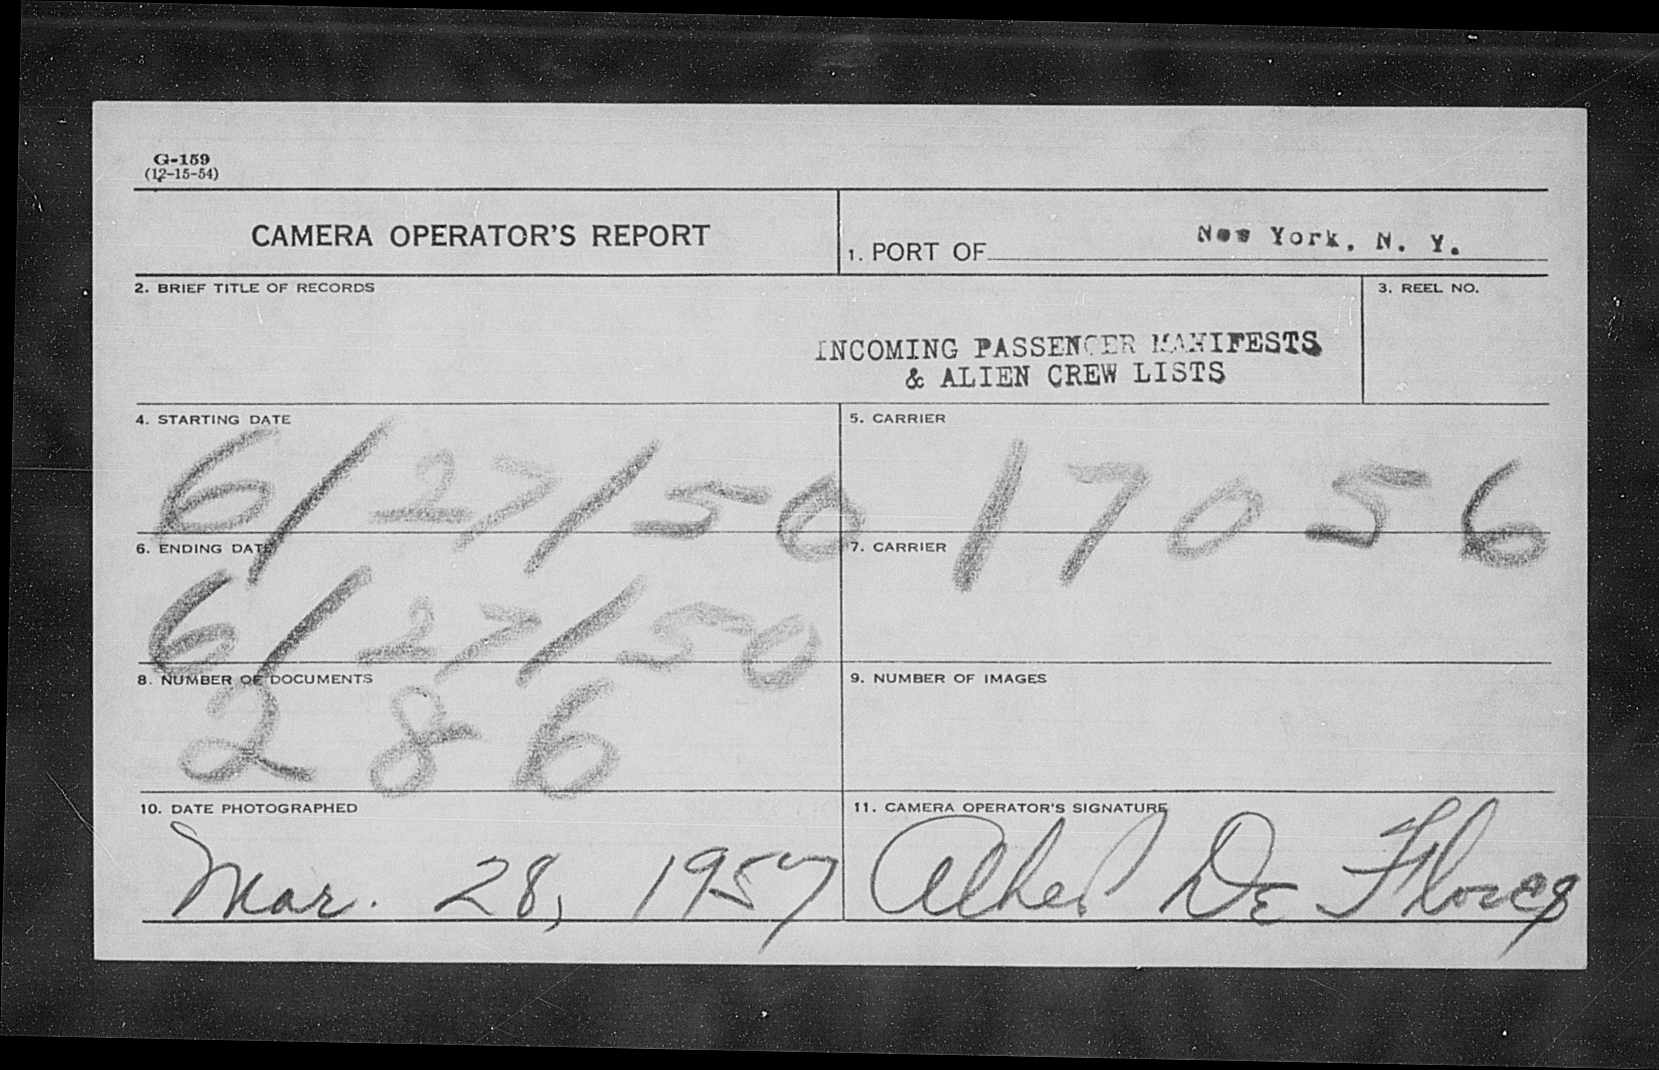 G-159
(12-15-54)
CAMERA OPERATOR'S REPORT
1. PORT OF New York, N. Y.
2. BRIEF TITLE OF RECORDS
3. REEL NO.
INCOMING PASSENGER MANIFESTS
& ALIEN CREW LISTS
4. STARTING DATE
6/27/50
5. CARRIER
17056
6. ENDING DATE
6/27/50
7. CARRIER
8. NUMBER OF DOCUMENTS
286
9. NUMBER OF IMAGES
10. DATE PHOTOGRAPHED
Mar. 28, 1957
11. CAMERA OPERATOR'S SIGNATURE
De Flores